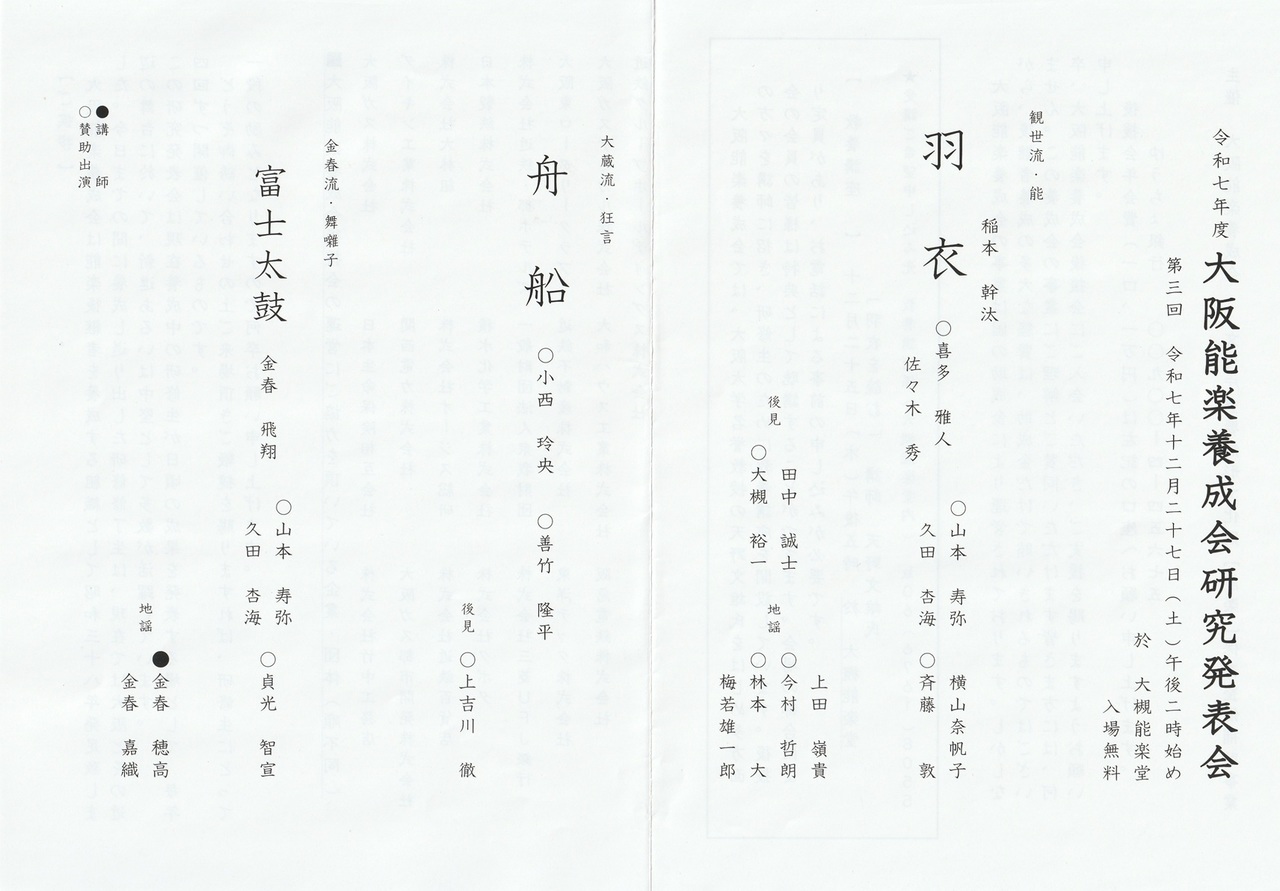 令和七年度 大阪能楽養成会研究発表会
第三回 令和七年十二月二十七日（土）午後二時始め
於 大槻能楽堂
入場無料
観世流・能
稲本 幹汰
羽衣
○喜多 雅人
佐々木 秀
○山本 寿弥
久田 杏海
横山奈帆子
○斉藤 敦
後見
田中 誠士
○大槻 裕一
地謡
上田 嶺貴
○今村 哲朗
○林本 大
梅若雄一郎
大蔵流・狂言
舟船
○小西 玲央
○善竹 隆平
後見
○上吉川 徹
金春流・舞囃子
富士太鼓
金春 飛翔
○山本 寿弥
久田 杏海
○貞光 智宣
地謡
●金春 穂高
金春 嘉織
●講師
○賛助出演